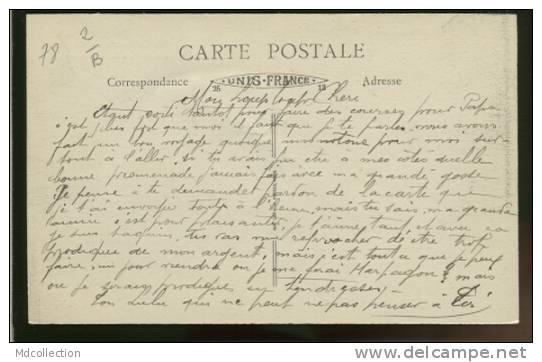 78
2
B
CARTE POSTALE
Correspondance
25 UNIS-FRANCE 13
Adresse
Mon
sorti tantot pour faire des courses pour Papa
que je te parles, nous avons
fait un bon voyage quoique un monotone pour moi sur-
tout à l'aller, si tu avais pu être a mes côtés quelle
bonne promenade j'aurais fais avec ma grande gosse
Je pense à te demander pardon de la carte que
je t'ai envoyée toute à l'heure, mais tu sais, ma grande
c'est pour plaisanter, je t'aime tant, et avec ça
je suis taquin, tu vas me reprocher de être trop
prodigue de mon argent, mais c'est tout ce que je peux
faire, un jour viendra ou je me ferai Harpagon, mais
ou je serais prodigue en
Ton Lulu qui ne peut ne pas penser à Toi
MDcollection
www.delcampe.net